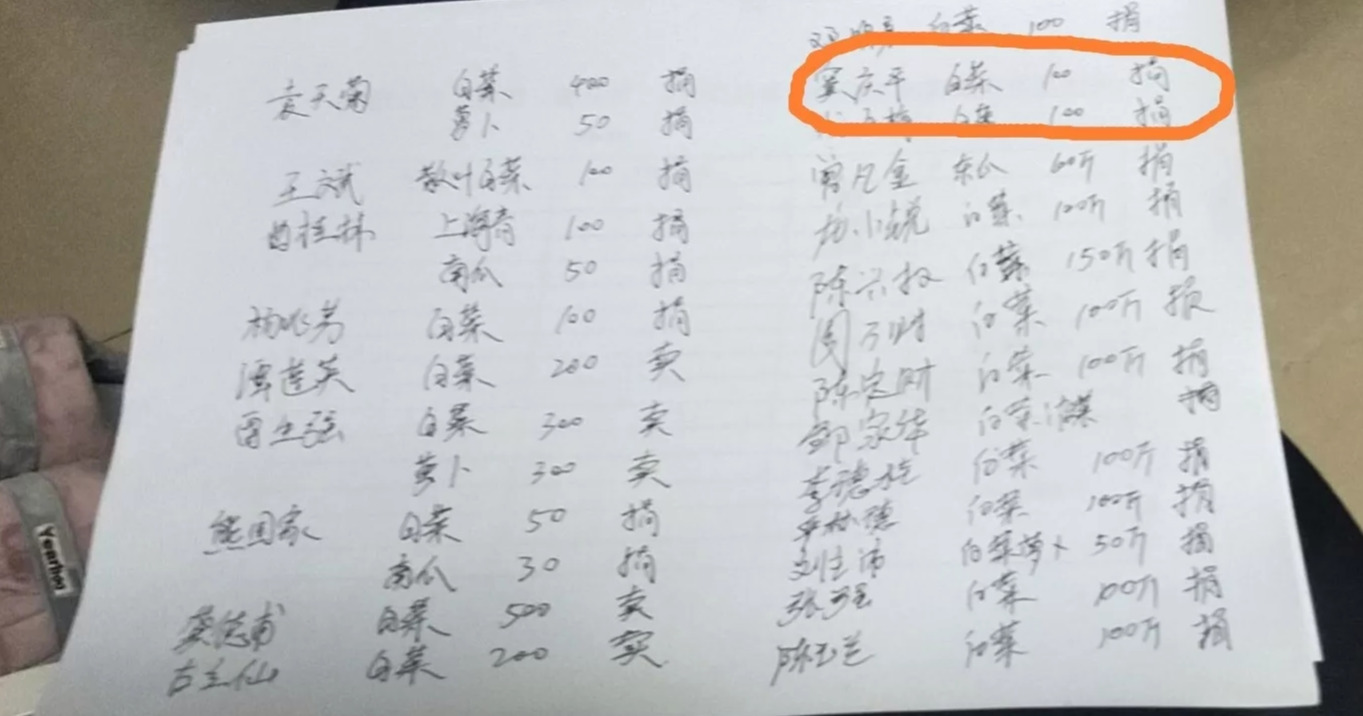 袁天菊 白菜 400 捐
萝卜 50 捐
王文斌 散叶白菜 100 捐
曾桂林 上海青 100 捐
南瓜 50 捐
白菜 100 捐
谭莲英 白菜 200 卖
白菜 300 卖
萝卜 300 卖
熊国家 白菜 50 捐
南瓜 30 捐
龚德甫 白菜 500 卖
古立仙 白菜 200 卖
白菜 100 捐
庆平 白菜 100 捐
白菜 100 捐
曾凡金 东瓜 60斤 捐
杨小锐 白菜 100斤 捐
陈兴权 白菜 150斤 捐
周万财 白菜 100斤 捐
陈定财 白菜 100斤 捐
邹家华 白菜 捐
李德 白菜 100斤 捐
林德 白菜 100斤 捐
白菜萝卜 50斤 捐
张 白菜 100斤 捐
陈玉兰 白菜 100斤 捐